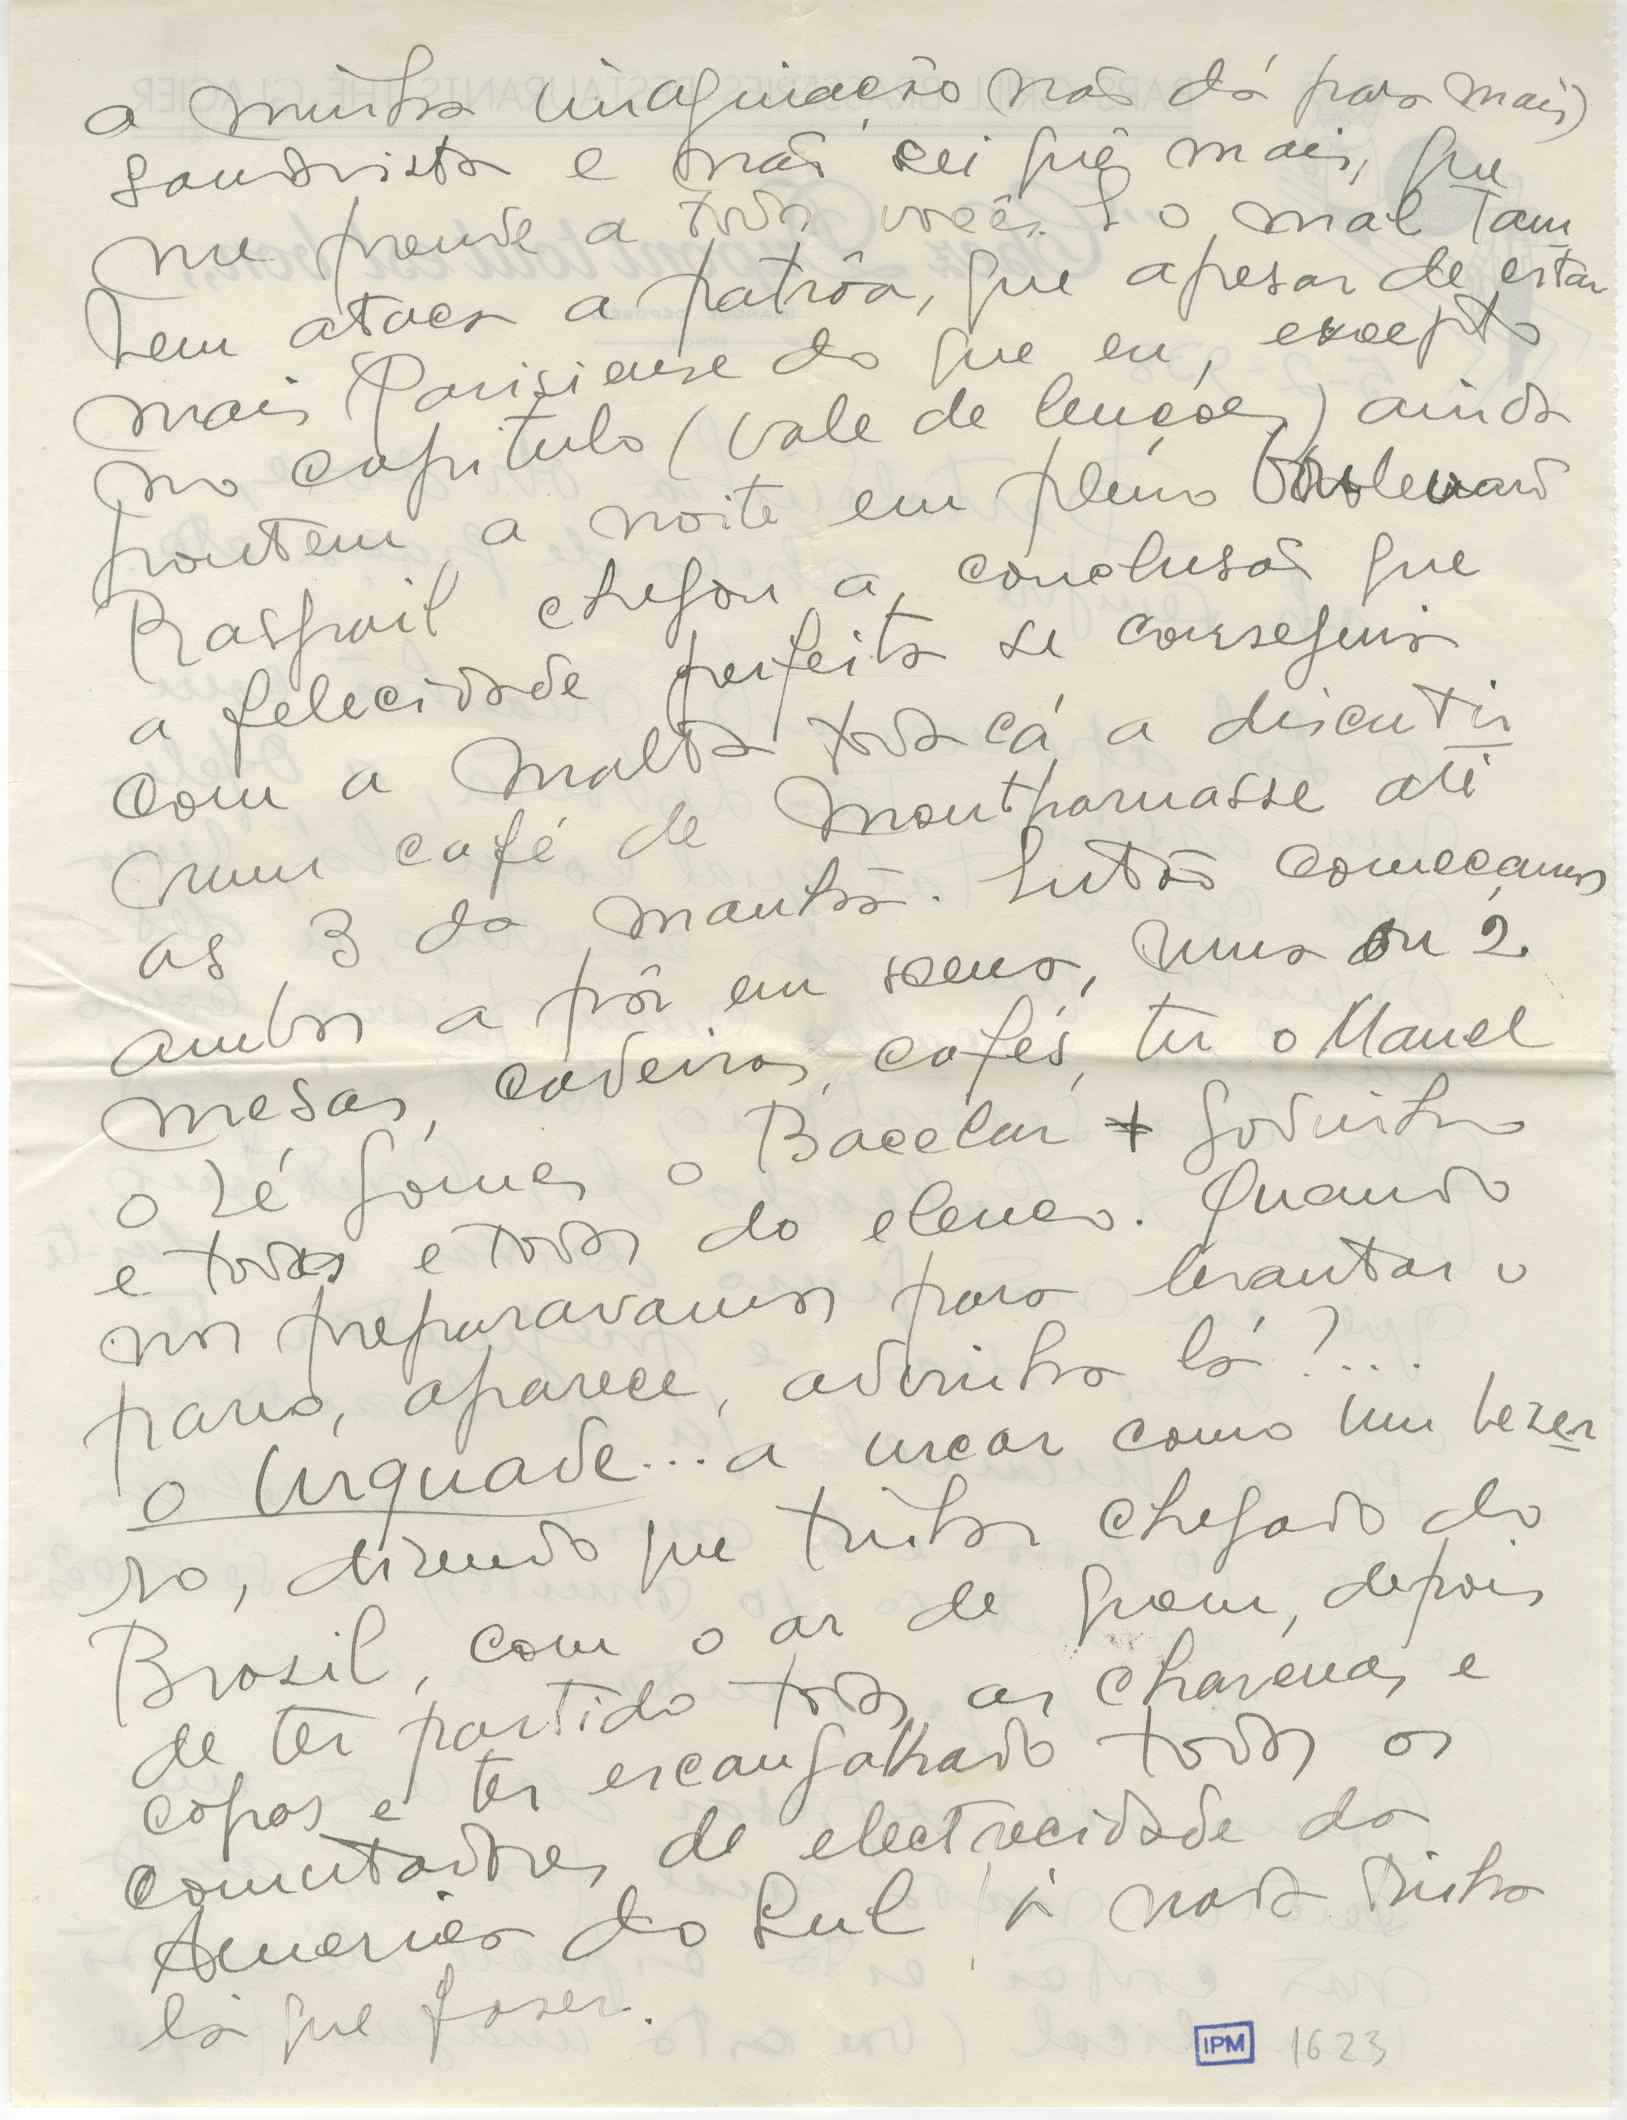 a minha imaginação não dá para mais)
saudosista e não sei quê mais, que
me prende a todos vocês. E o mal tam
bem ataca a patrôa, que apesar de estar
mais Parisiense do que eu, excepto
no capitulo (vale de lençóes) ainda
hontem a noite em pleno Boulevard
Raspail chegou a conclusão que
a felecidade perfeita se conseguia
com a malta toda cá a discutir
num café de Montparnasse até
as 3 da manhã. Então começamos
ambos a pôr em scena, numa ou 2
mesas, cadeiras, cafés, tu o Manel
o Zé Gómes o Bacelar + Godinho
e todas e todos do elenco. Quando
nos preparavamos para levantar o
pano, aparece, advinha lá?...
o Urquade... a urrar como um bezer
ro, dizendo que tinha chegado do
Brasil, com o ar de quem, depois
de ter partido todas as chavenas e
copos e ter escangalhado todos os
comutadores de electrecidade da
America do Sul já nada tinha
lá que fazer.
IPM 1623